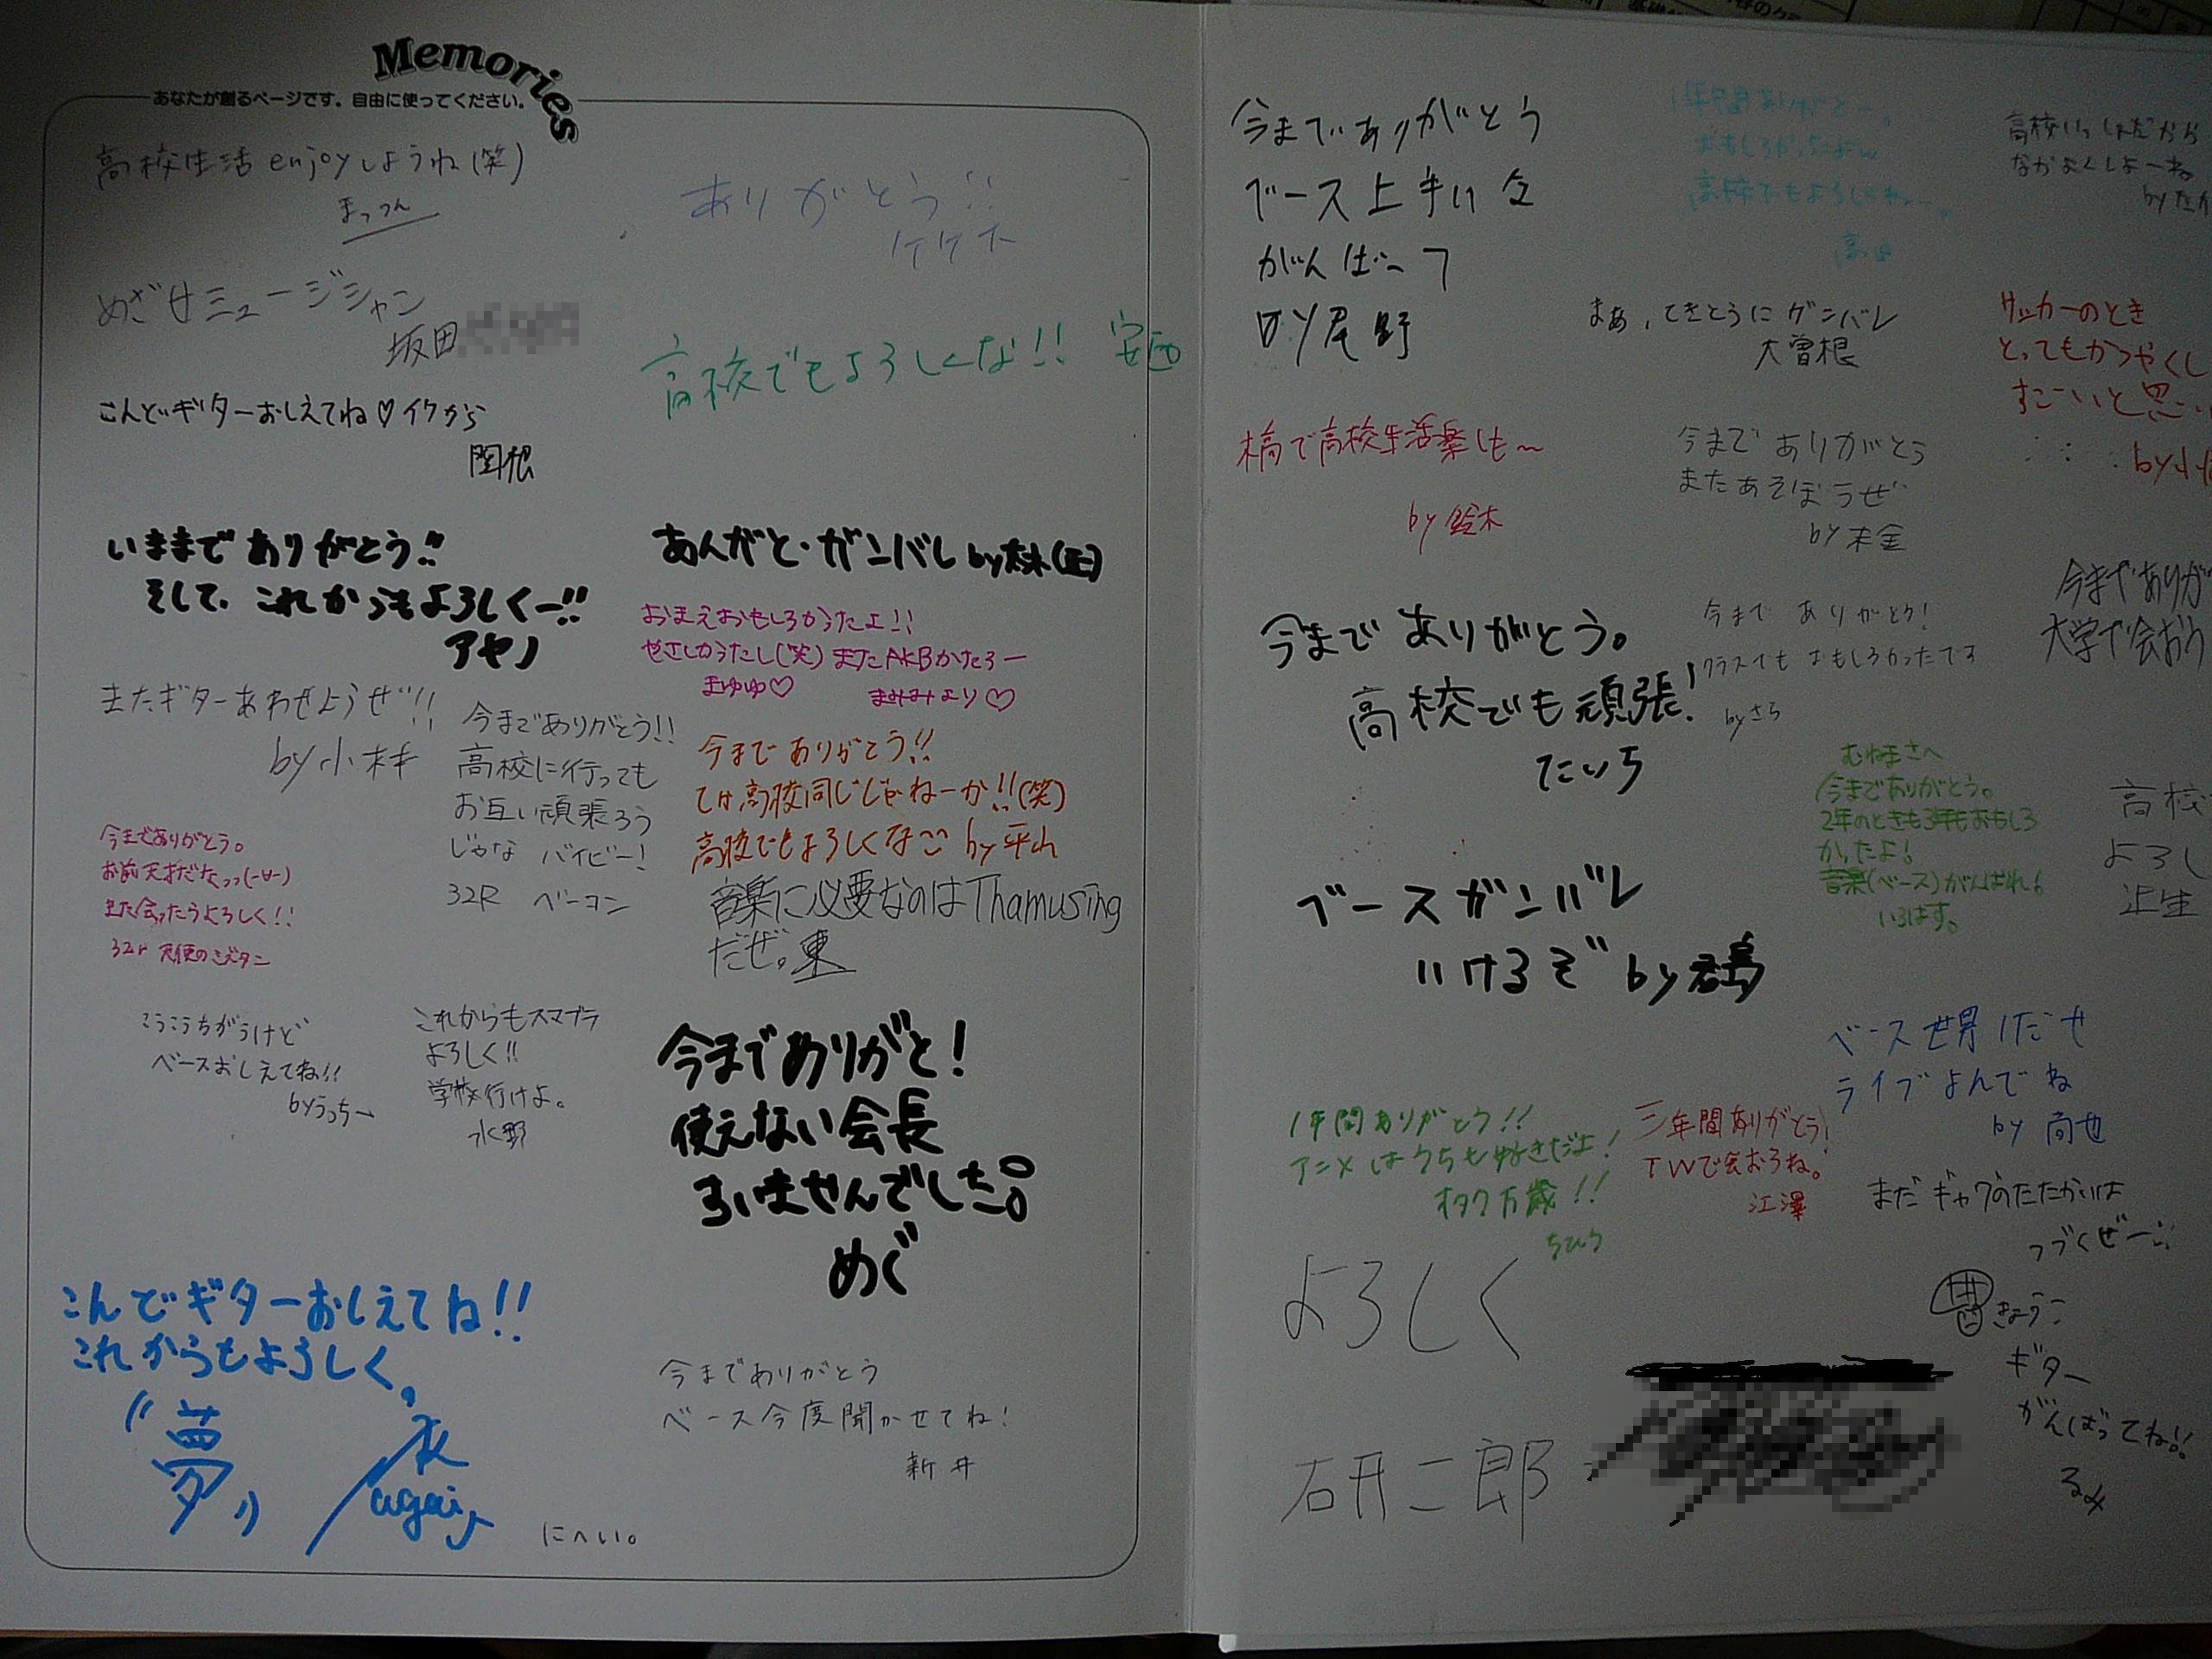 Memories
あなたが創るページです。自由に使ってください。
高校生活enjoyしようね(笑)
まっつん
めざせミュージシャン
坂田
こんどギターおしえてね♡イケから
関根
いままでありがとう!!
そして、これからもよろしくー!!
アヤノ
またギターあわせようぜ!!
by小林
今までありがとう!!
高校に行っても
お互い頑張ろう
じゃな バイビー!
32R ベーコン
今までありがとう。
お前天才だなっっ(-∀-)
また会ったらよろしく!!
32r 天使のミタン
こうこうちがうけど
ベースおしえてね!!
byうっちー
これからもスマブラ
よろしく!!
学校行けよ。
水野
こんでギターおしえてね!!
これからもよろしく。
"夢"
永
again
にへい。
ありがとう!!
高校でもよろしくな!! 安西
あんがと・ガンバレ by
おまえおもしろかったよ!!
やさしかったし(笑)またAKBかたろー
まゆゆ♡ まみみより♡
今までありがとう!!
てけ高校同じじゃねーか!!(笑)
高校でもよろしくな by平山
音楽に必要なのはThamusing
だぜ。東
今までありがと!
使えない会長
ろいませんでした。
めぐ
今までありがとう
ベース今度聞かせてね!
新井
今までありがとう
ベース上手い
がんばって
尾野
で高校生活楽しも〜
by 鈴木
今まで ありがとう。
高校でも頑張!
たいち
ベースガンバレ
いけるぞ by
1年間ありがとう!!
アニメはうちも好きだよ!
オタク万歳!!
ちひろ
よろしく
研二郎
1年間ありがとー。
おもしろかったよw
高校でもよろしくねー。
まあ、てきとうにガンバレ
大曽根
今まで ありがとう
またあそぼうぜ
by 末金
今まで ありがとう!
クラスでも おもしろかったです
by さら
むねまさへ
今までありがとう。
2年のときも3年もおもしろ
かったよ!
音楽(ベース)がんばれ!
いろはす。
ベース世界1だせ
ライブよんでね
by 尚也
三年間ありがとう!
TWで会おうね。
江澤
まだギャグのたたかいは
つづくぜー!!
きょうこ
ギター
がんばってね!!
るみ
高校いっしょだから
なかよくしよーね。
by たか
サッカーのとき
とってもかつやくし
すごーいと思い
by 小
今までありが
大学で会おう
高校
よろし